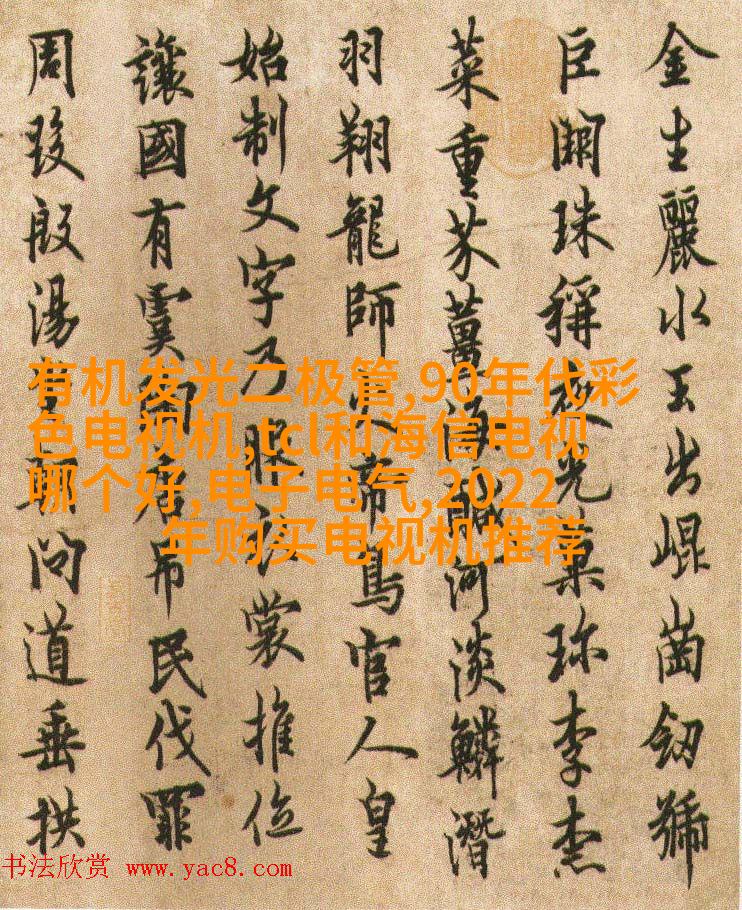 金生麗水玉出崐崗釼號
巨闕珠稱夜光菓珎李柰
菜重芥薑海鹹河淡鱗潛
羽翔龍師火帝鳥官人皇
始制文字乃服衣裳推位
讓國有虞陶唐弔民伐罪
周發殷湯坐朝問道垂拱
有机发光二极管,90年代彩
色电视机,tcl和海信电视
哪个好,电子电气,2022
年购买电视机推荐
书法欣赏 www.yac8.com